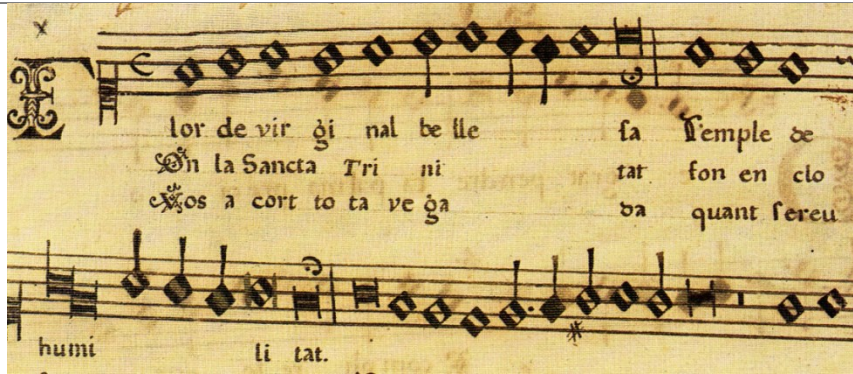 Flor de vir gi nal be lle sa Temple de
On la Sancta Tri ni tat fon en clo
Vos a cort to ta ve ga da quant sereu
humi li tat.